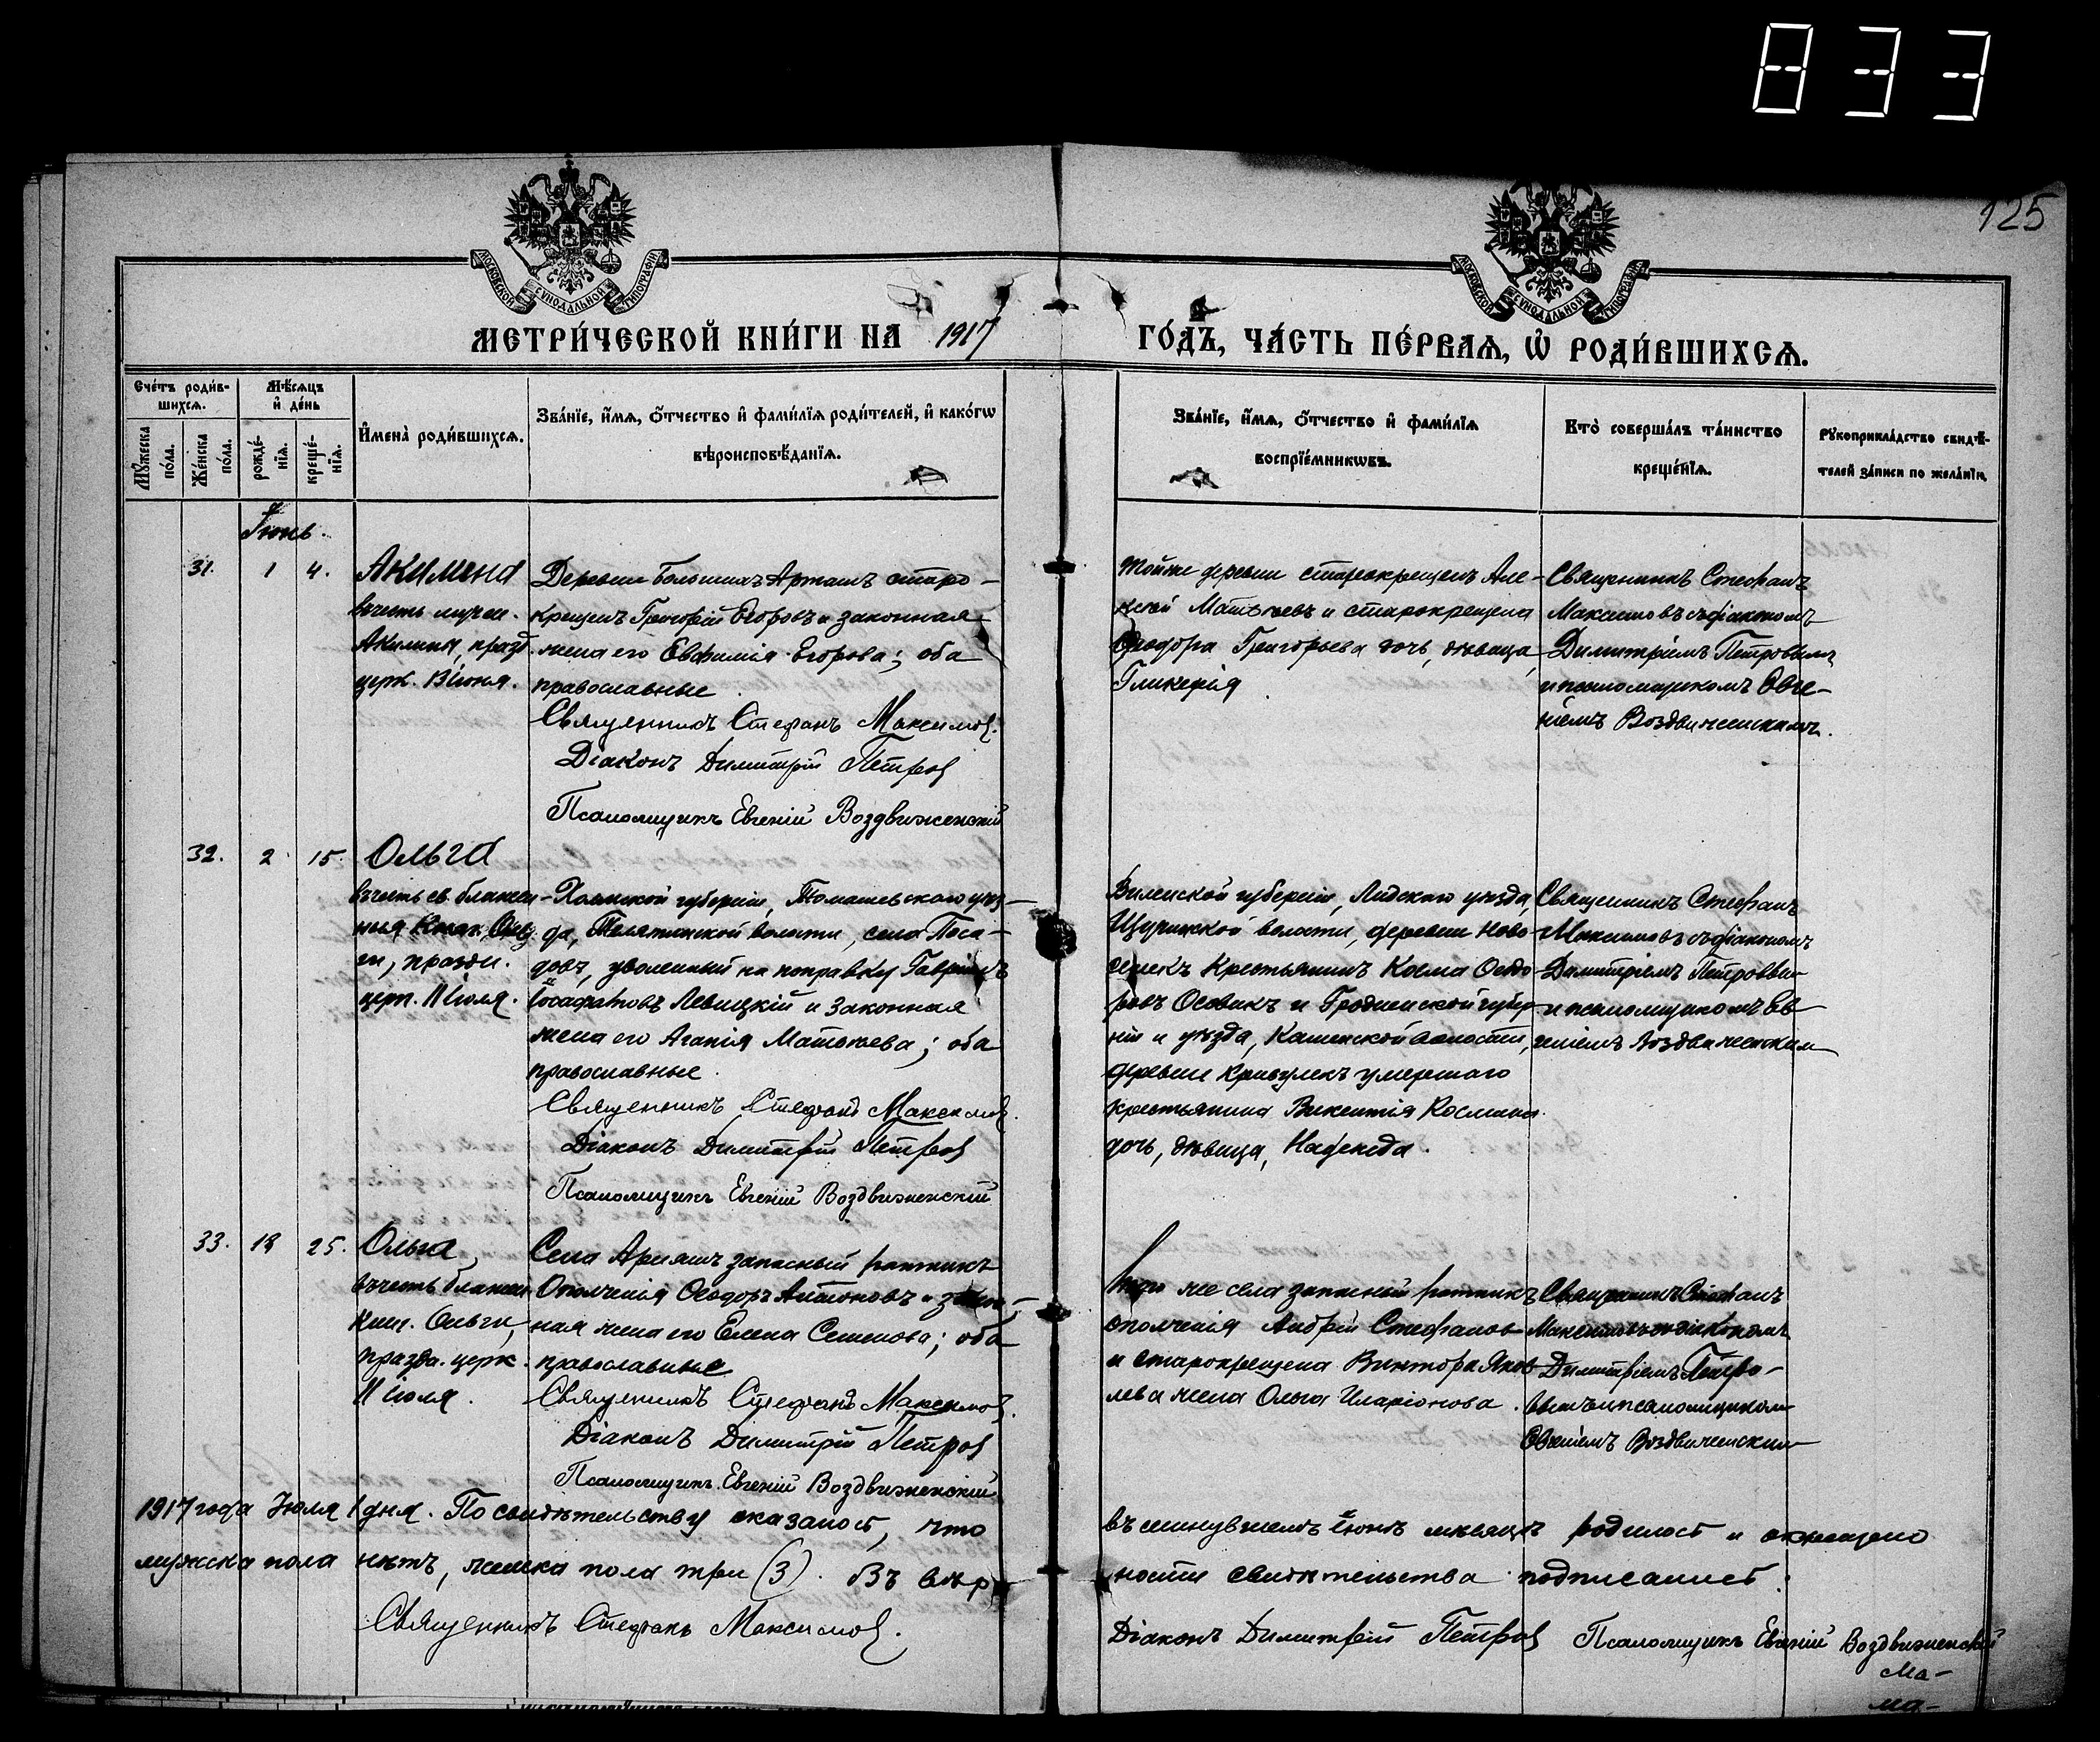 833
125
МОСКОВСКОЙ СѴНОДАЛЬНОЙ ТИПОГРАФІИ
МОСКОВСКОЙ СѴНОДАЛЬНОЙ ТИПОГРАФІИ
МЕТРИ́ЧЕСКОЙ КНИ́ГИ НА 1917
ГО́ДЪ, ЧА́СТЬ ПЕ́РВАѦ, Ѡ҆ РОДИ́ВШИХСѦ.
Сче́тъ роди́в-
шихсѧ.
Мꙋ́жеска
по́ла.
Же́нска
по́ла.
Мѣ́сѧцъ
и҆ де́нь
рожде́-
нїѧ.
креще́-
нїѧ.
И҆мена̀ роди́вшихсѧ.
Зва́нїе, и҆́мѧ, ѻ҆́тчество и҆ фами́лїѧ роди́телей, и҆ како́гѡ
вѣроисповѣ́данїѧ.
Зва́нїе, и҆́мѧ, ѻ҆́тчество и҆ фами́лїѧ
воспрїе́мникѡвъ.
Кто̀ соверша́лъ та́инство
креще́нїѧ.
Рꙋкоприкла́дство свидѣ́-
телей за́писи по жела́нїю.
Іюнь.
31. 1 4.
Акилина
въ честь мучен.
Акилины, празд.
церк. 13 іюня.
Деревни Большихъ Арташъ старо-
крещенъ Григорій Егоровъ и законная
жена его Евфимія Егорова; оба
православные
Священникъ Стефанъ Максимовъ.
Діаконъ Димитрій Петровъ
Псаломщикъ Евгеній Воздвиженскій
Тойже деревни старокрещенъ Але-
ксѣй Матвѣевъ и старокрещена
Ѳеодора Григорьева дочь, дѣвица
Гликерія
Священникъ Стефанъ
Максимовъ съ діакономъ
Димитріемъ Петровымъ
и псаломщикомъ Евге-
ніемъ Воздвиженскимъ.
32. 2 15.
Ольга
въ честь св. блажен-
ныя Княг. Оль-
ги, праздн.
церк. 11 іюля.
Холмской губерніи, Томашевскаго уѣз-
да, Телятинской волости, села Поса-
довъ, уволенный на поправку Гавріилъ
Іосафатовъ Левицкій и законная
жена его Агапія Матвѣева; оба
православные.
Священникъ Стефанъ Максимовъ.
Діаконъ Димитрій Петровъ
Псаломщикъ Евгеній Воздвиженскій
Виленской губерніи, Лидскаго уѣзда,
Щучинской волости, деревни Ново-
крестьянинъ Косма Ѳеодо-
ровъ Осовикъ и Гродненской губер-
ніи и уѣзда, Каменской волости,
деревни умершаго
крестьянина Викентія Космина
дочь, дѣвица, Надежда.
Священникъ Стефанъ
Максимовъ съ діакономъ
Димитріемъ Петровым
и псаломщикомъ Ев-
геніемъ Воздвиженским
33. 18 25.
Ольга
въ честь блажен
княг. Ольги,
празд. церк.
11 іюля.
Села Арняшъ запасный ратникъ
Ополченія Ѳеодоръ Антоновъ и закон-
ная жена его Елена Семенова; оба
православные
Священникъ Стефанъ Максимовъ.
Діаконъ Димитрій Петровъ
Псаломщикъ Евгеній Воздвиженскій
Того же села запасный ратникъ
ополченія Андрей Стефановъ
и старокрещена Виктора Яков-
лева жена Ольга Иларіонова.
Священникъ Стефанъ
Максимовъ съ діакономъ
Димитріемъ Петро-
вымъ и псаломщиком
Евгеніемъ Воздвиженским
1917 года Іюля 1 дня. По свидѣтельству оказалось, что
въ минувшемъ Іюнѣ мѣсяцѣ родилось и окрещено
мужска пола нѣтъ, женска пола три (3). Въ вѣр-
ности свидѣтельства подписались:
Священникъ Стефанъ Максимовъ.
Діаконъ Димитрій Петровъ Псаломщикъ Евгеній Воздвиженскій
Ма-
ма-